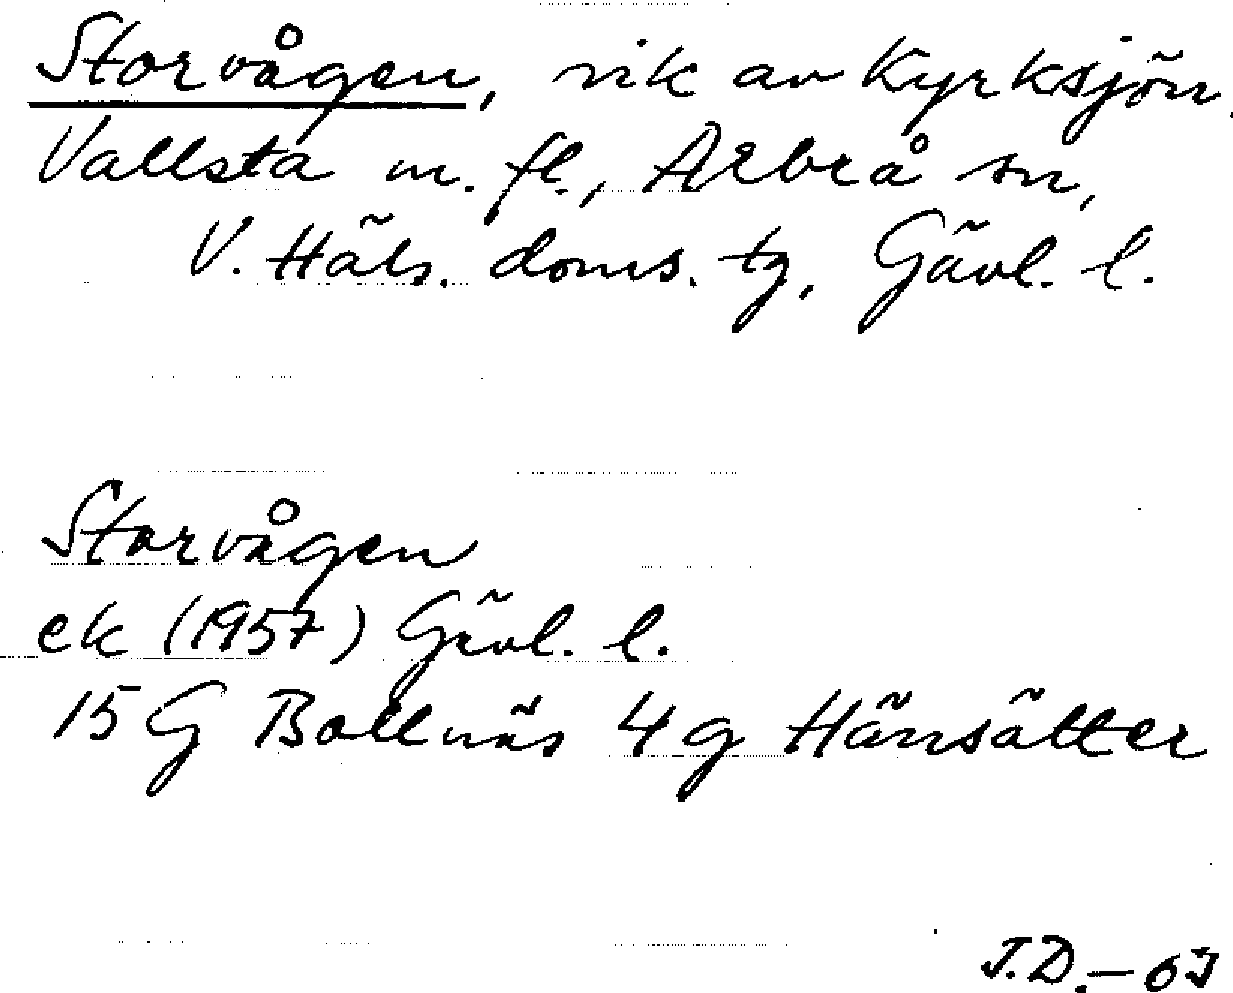 Storvågen, vik av Kyrksjön.
Vallsta m. fl., Arbrå sn,
V. Häls. doms. tg, Gävl. l.
Storvågen
ek (1957) Gävl. l.
15 G Bollnäs 4 g Hänsätter
J.D.–